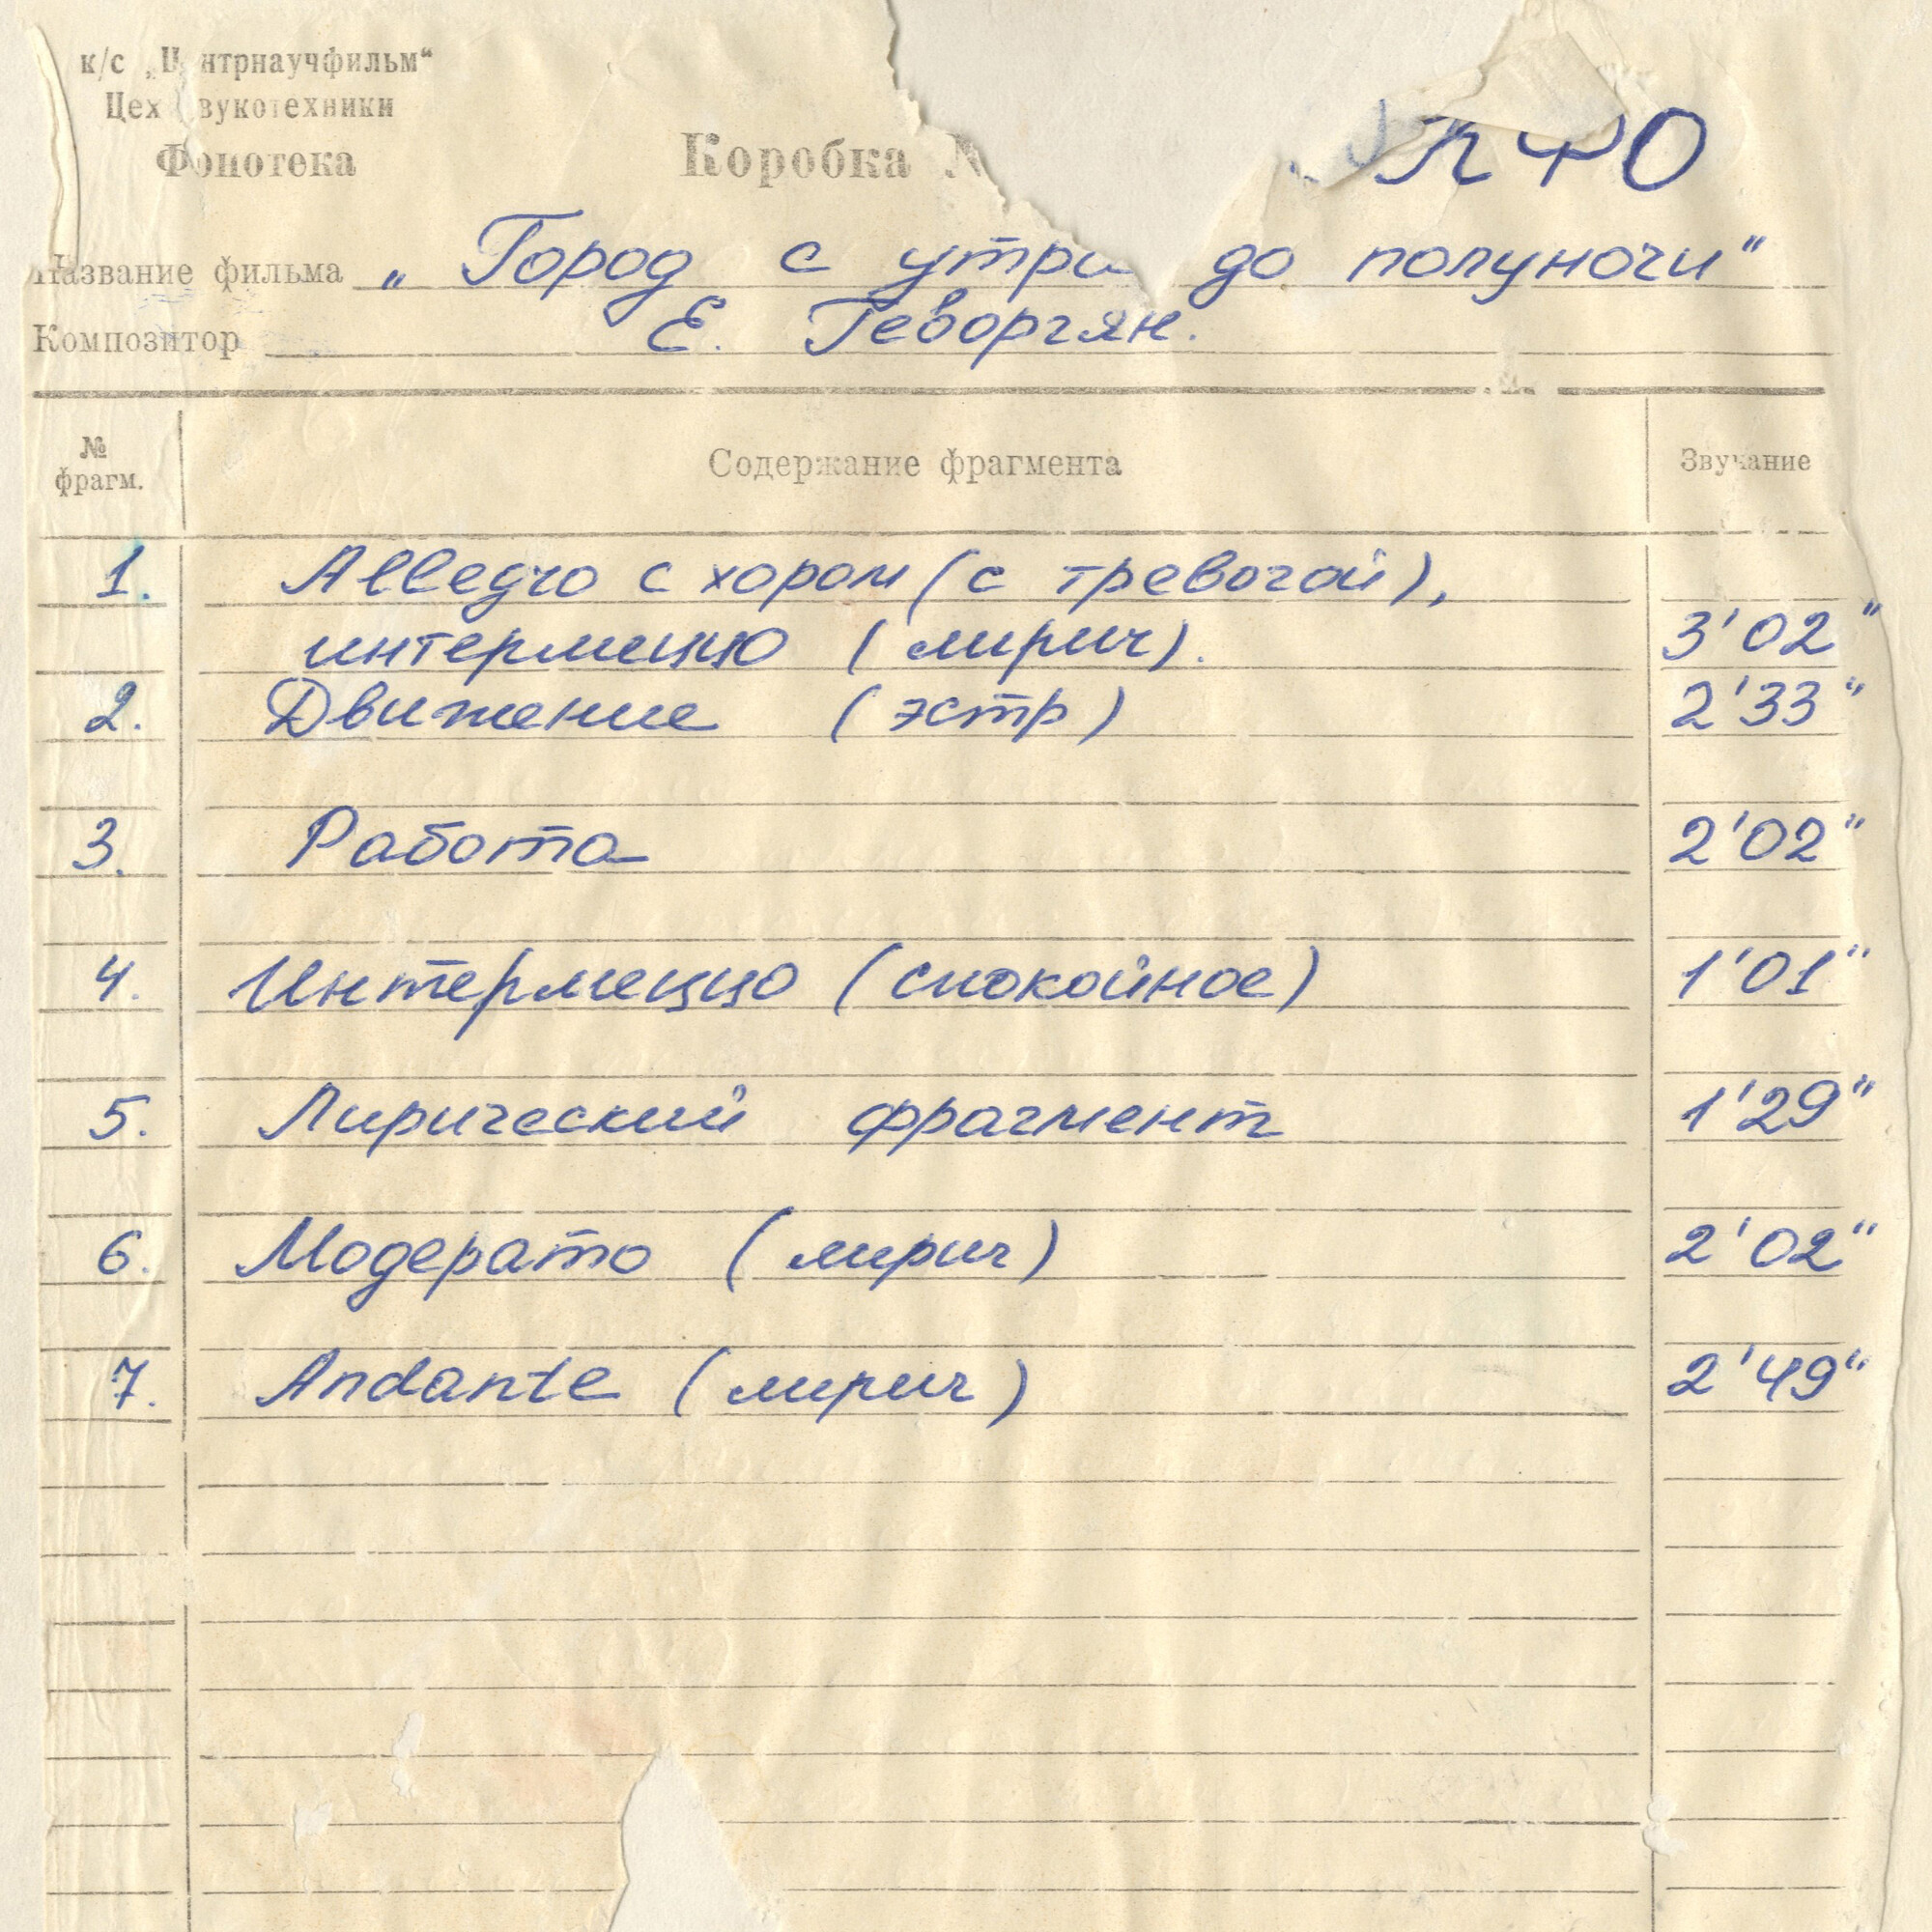 к/с „Центрнаучфильм“
Цех звукотехники
Фонотека
Коробка №
Название фильма „Город с утра до полуночи“
Композитор Е. Геворгян.
№ фрагм. Содержание фрагмента Звучание
1. Allegro с хором (с тревогой),
интермеццо (лирич). 3'02"
2. Движение (эстр) 2'33"
3. Работа 2'02"
4. Интермеццо (спокойное) 1'01"
5. Лирический фрагмент 1'29"
6. Модерато (лирич) 2'02"
7. Andante (лирич) 2'49"